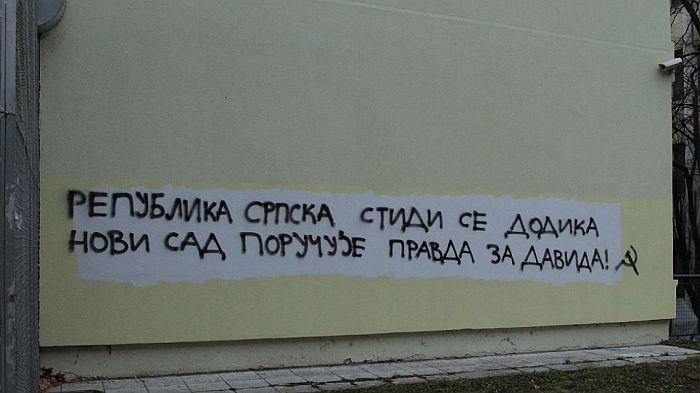 РЕПУБЛИКА СРПСКА СТИДИ СЕ ДОДИКА
НОВИ САД ПОРУЧУЈЕ ПРАВДА ЗА ДАВИДА! ☭